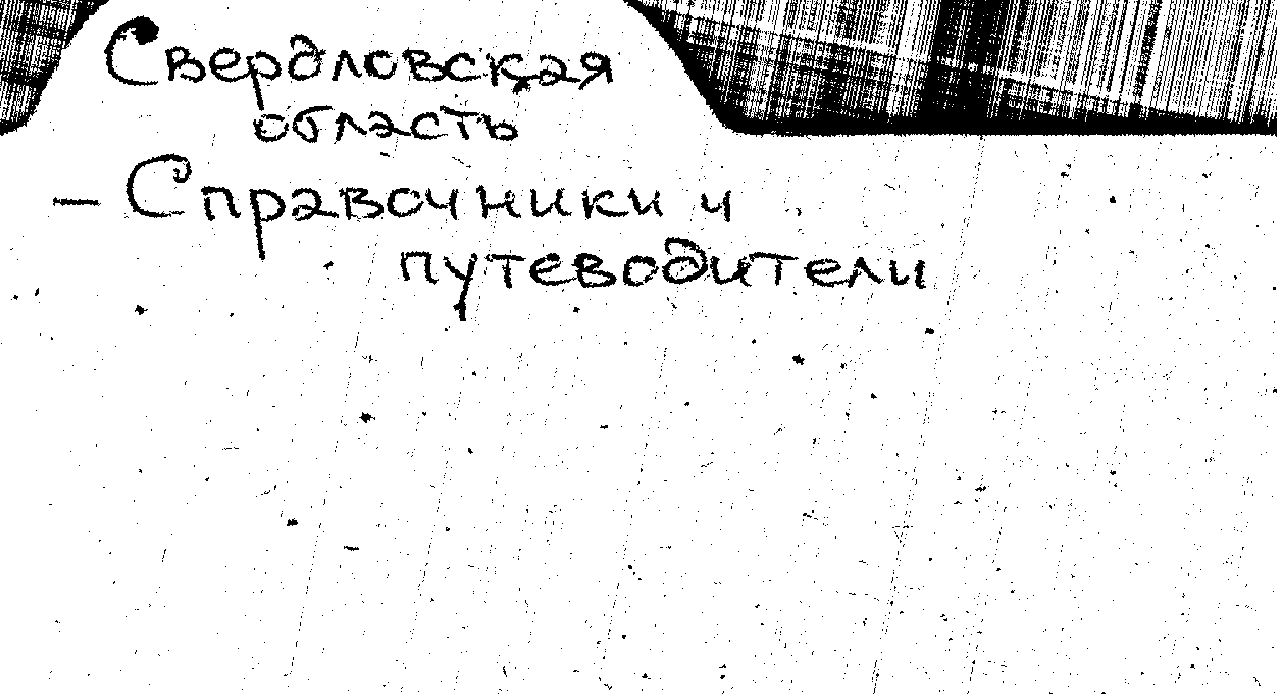 Свердловская
область
— Справочники и
путеводители